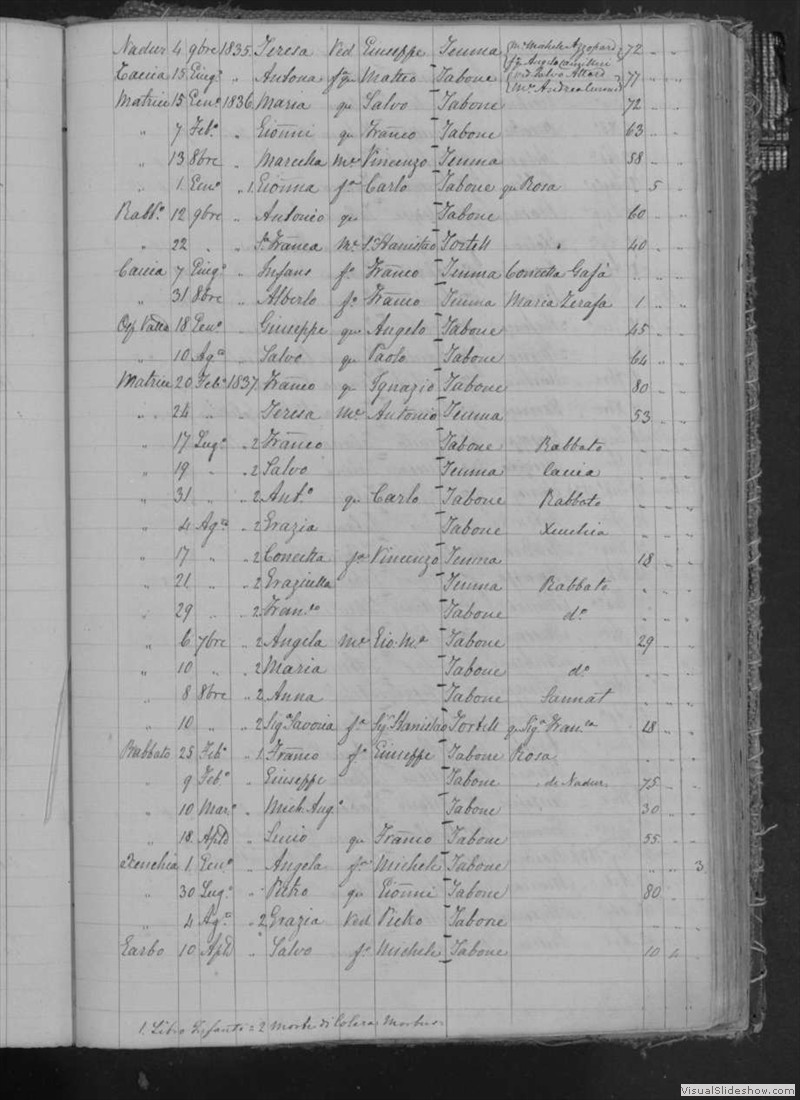 Nadur 4 9bre 1835 Teresa Ved Giuseppe Temma Me. Michele Azzopardi 72 " "
fa. Angela Camilleri
Caccia 15 Giugo " Antona fa qu Matteo Tabone Ved Salvo Attard 77 " "
Me. Andrea
Matrice 15 Geno 1836 Maria qu Salvo Tabone 72 " "
" 7 Febo " Gionni qu Franco Tabone 63 " "
" 13 8bre " Me. Vincenzo Temma 58 " "
" 1 Geno " 1 Gionna fa Carlo Tabone qu Rosa " 5 "
Rabbo 12 9bre " Antonio qu Tabone 60 " "
" 22 " " Sa. Franca Me. Sr. Stanislao Tortell " 40 " "
Caccia 7 Giugo " Infans fo Franco Temma Concetta Gafà " " "
" 31 8bre " Alberto fo Franco Temma Maria Zerafa 1 " "
18 Geno " Giuseppe qu Angelo Tabone 45 " "
" 10 Ago " Salvo qu Paolo Tabone 64 " "
Matrice 20 Febo 1837 Franco qu Ignazio Tabone 80 " "
" 24 " " Teresa Me. Antonio Temma 53 " "
" 17 Lugo " 2 Franco Tabone Rabbato " " "
" 19 " " 2 Salvo Temma Caccia " " "
" 31 " " 2 Anto qu Carlo Tabone Rabbato " " "
" 4 Ago " 2 Grazia Tabone Xeuchia " " "
" 17 " " 2 Concetta fa Vincenzo Temma 18 " "
" 21 " " 2 Graziella Temma Rabbato " " "
" 29 " " 2 Franco Tabone do " " "
" 6 7bre " 2 Angela Me. Gio. Ma. Tabone 29 " "
" 10 " " 2 Maria Tabone do " " "
" 8 8bre " 2 Anna Tabone Sannat " " "
" 10 " " 2 Siga. Savoria fa Sigr. Stanislao Tortell qu Siga. Franca 18 " "
Rabbato 25 Febo " 1 Franco fo Giuseppe Tabone Rosa " " "
" 9 Febo " Giuseppe Tabone di Nadur 75 " "
" 10 Maro " Mich. Ango Tabone 30 " "
" 18 Aple " qu Franco Tabone 55 " "
Xeuchia 1 Geno " Angela fa Michele Tabone " " 3
" 30 Lugo " Pietro qu Gionni Tabone 80 " "
" 4 Ago " 2 Grazia Ved Pietro Tabone " " "
Garbo 10 Aple " Salvo fo Michele Tabone 10 "
1. Libro Infanti = 2 Morte di Colera Morbus
VisualSlideshow.com